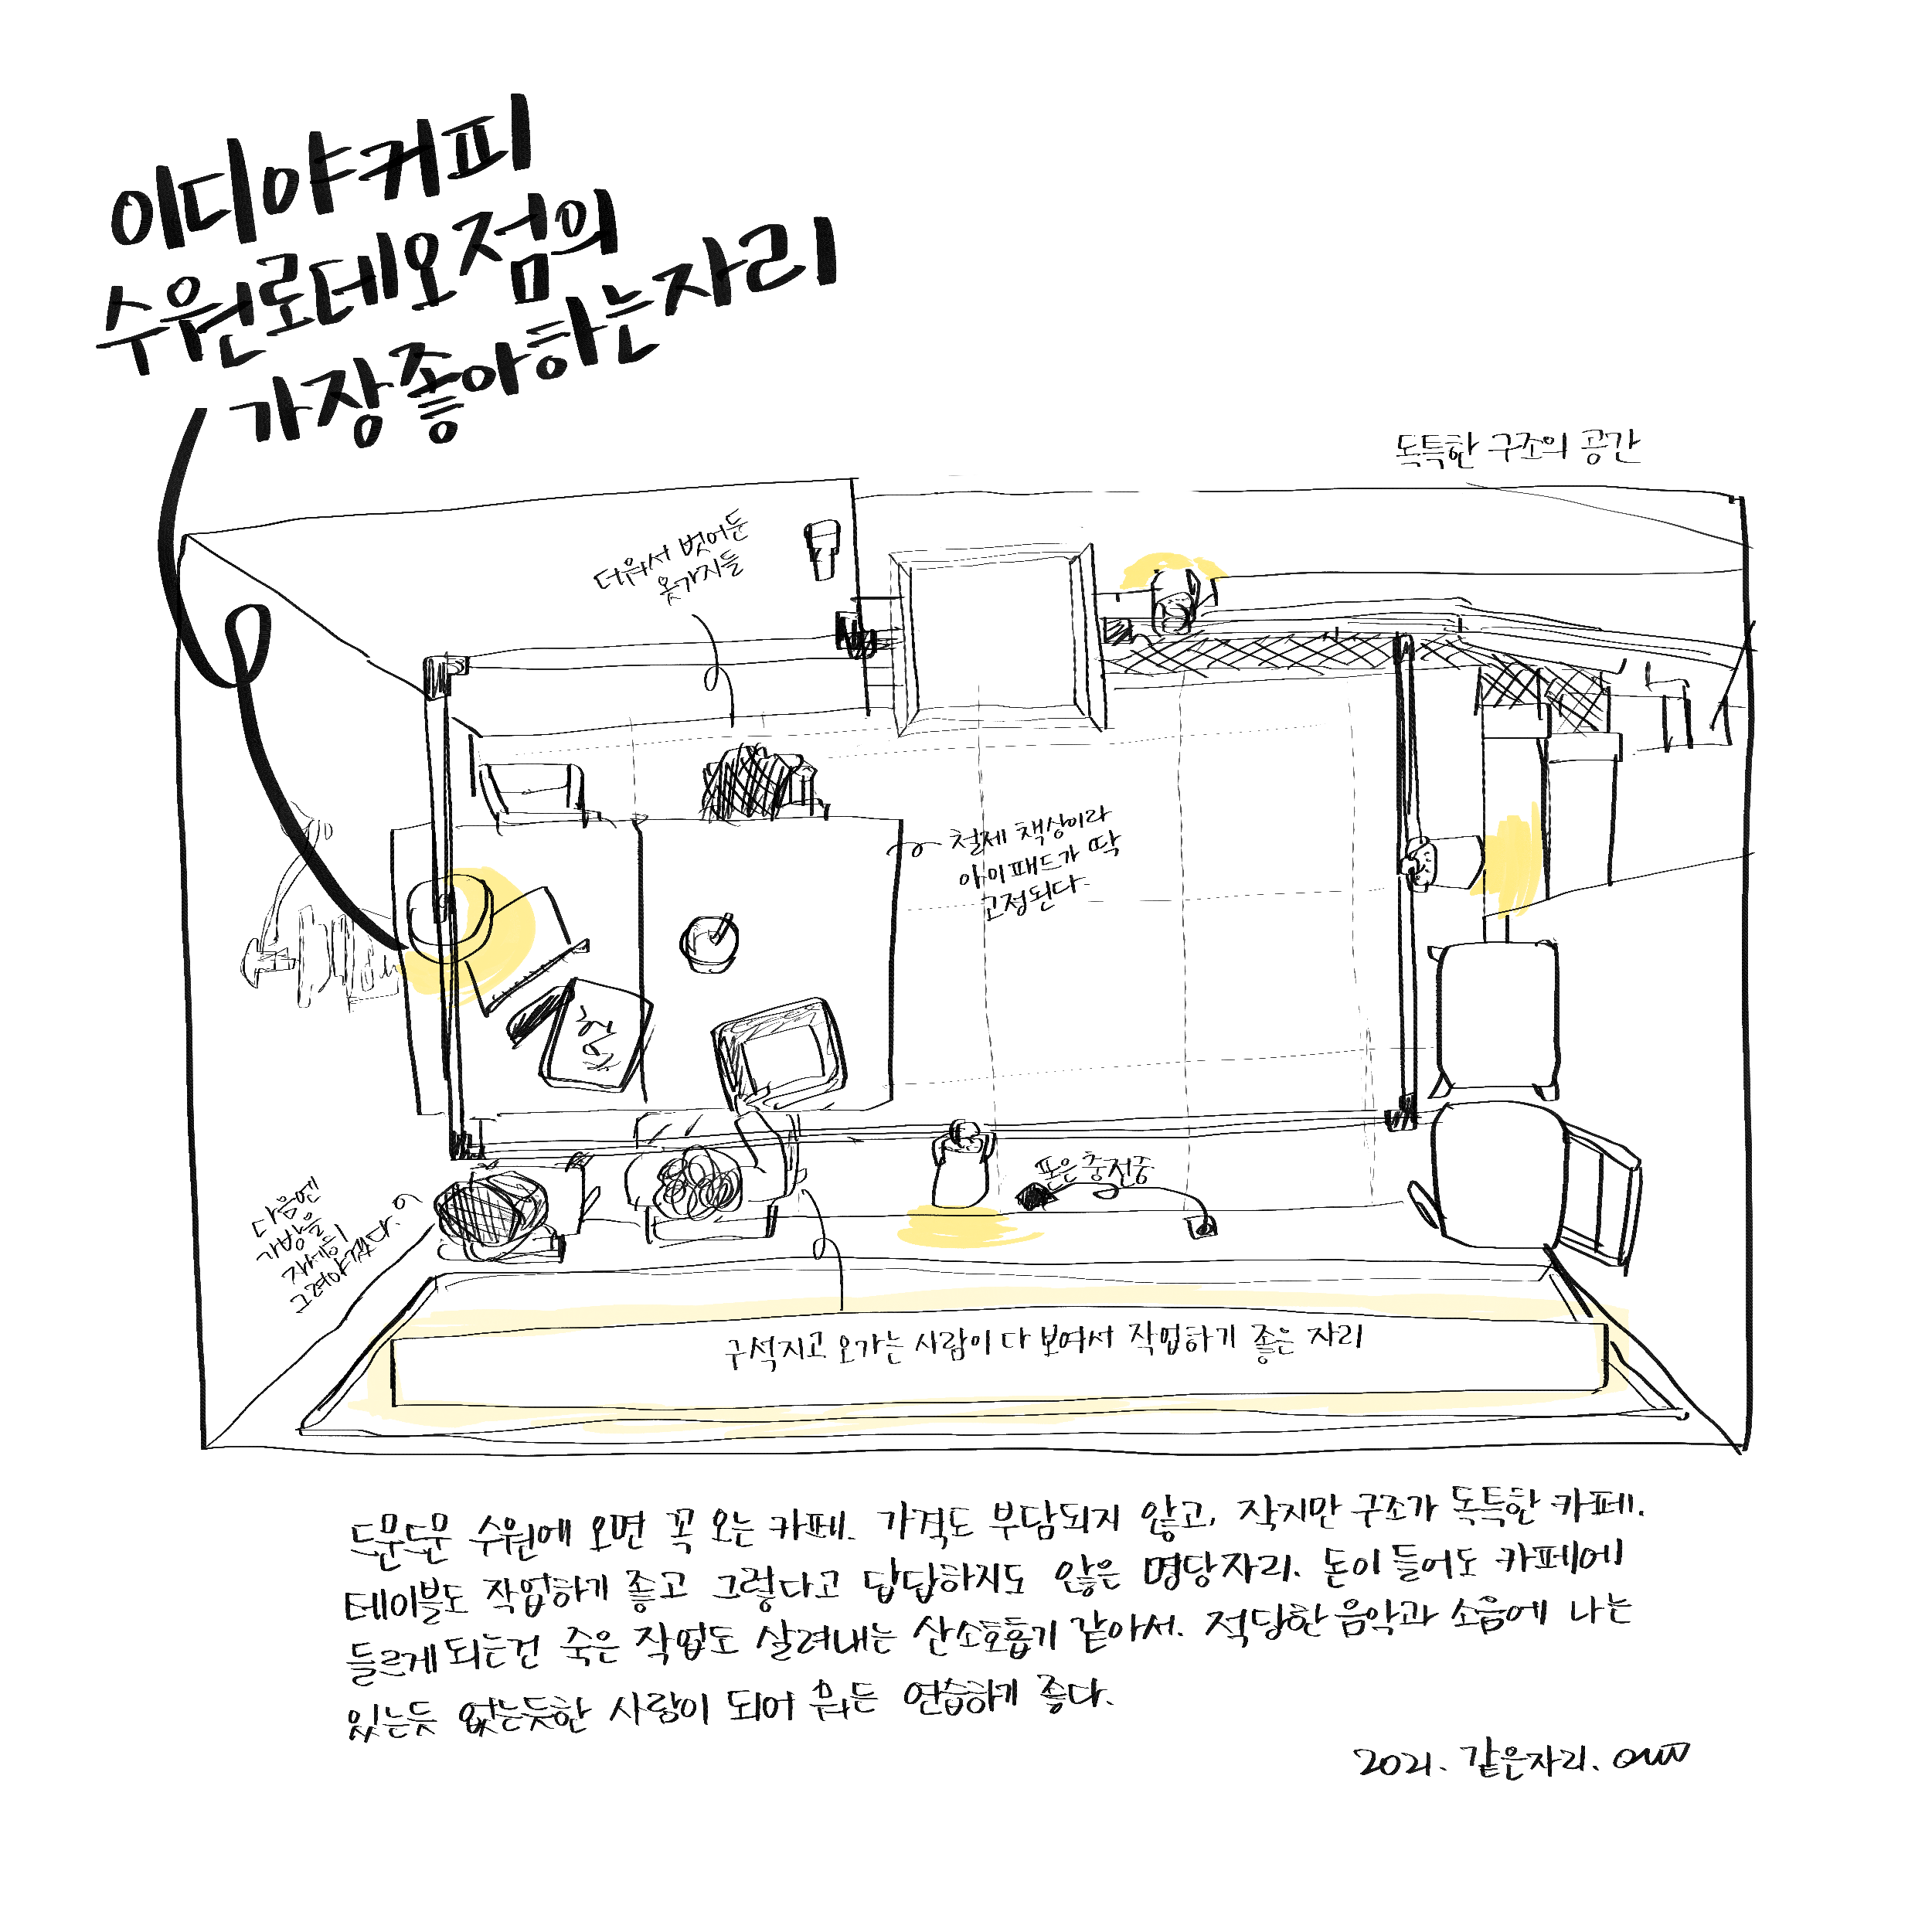 이디야커피
수원로데오점의
가장좋아하는자리
독특한 구조의 공간
더워서 벗어둔
옷가지들
철제 책상이라
아이패드가 딱
고정된다.
폰은 충전중
다음엔
가방을
자세히
그려야겠다.
구석지고 오가는 사람이 다 보여서 작업하기 좋은 자리
드문드문 수원에 오면 꼭 오는 카페. 가격도 부담되지 않고, 작지만 구조가 독특한 카페.
테이블도 작업하기 좋고 그렇다고 답답하지도 않은 명당자리. 돈이 들어도 카페에
들르게 되는건 죽은 작업도 살려내는 산소호흡기 같아서. 적당한 음악과 소음에 나는
있는듯 없는듯한 사람이 되어 뭐든 연습하기 좋다.
2021. 같은자리.